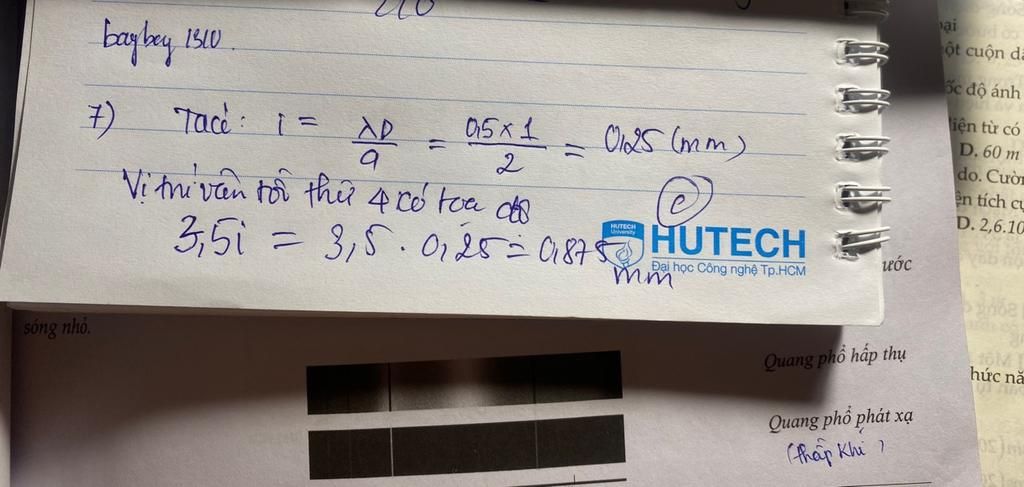 7) Ta có: i = λD/a = 0,5 x 1/2 = 0,25 (mm)
Vị trí vân tối thứ 4 có tọa độ
C
3,5i = 3,5 . 0,25 = 0,875 mm
HUTECH University
HUTECH
Đại học Công nghệ Tp.HCM
sóng nhỏ.
Quang phổ hấp thụ
Quang phổ phát xạ
(thấp khí)
ột cuộn d
ốc độ ánh
iện từ có
D. 60 m
do. Cườn
ện tích cự
D. 2,6.10
ước
hức nă